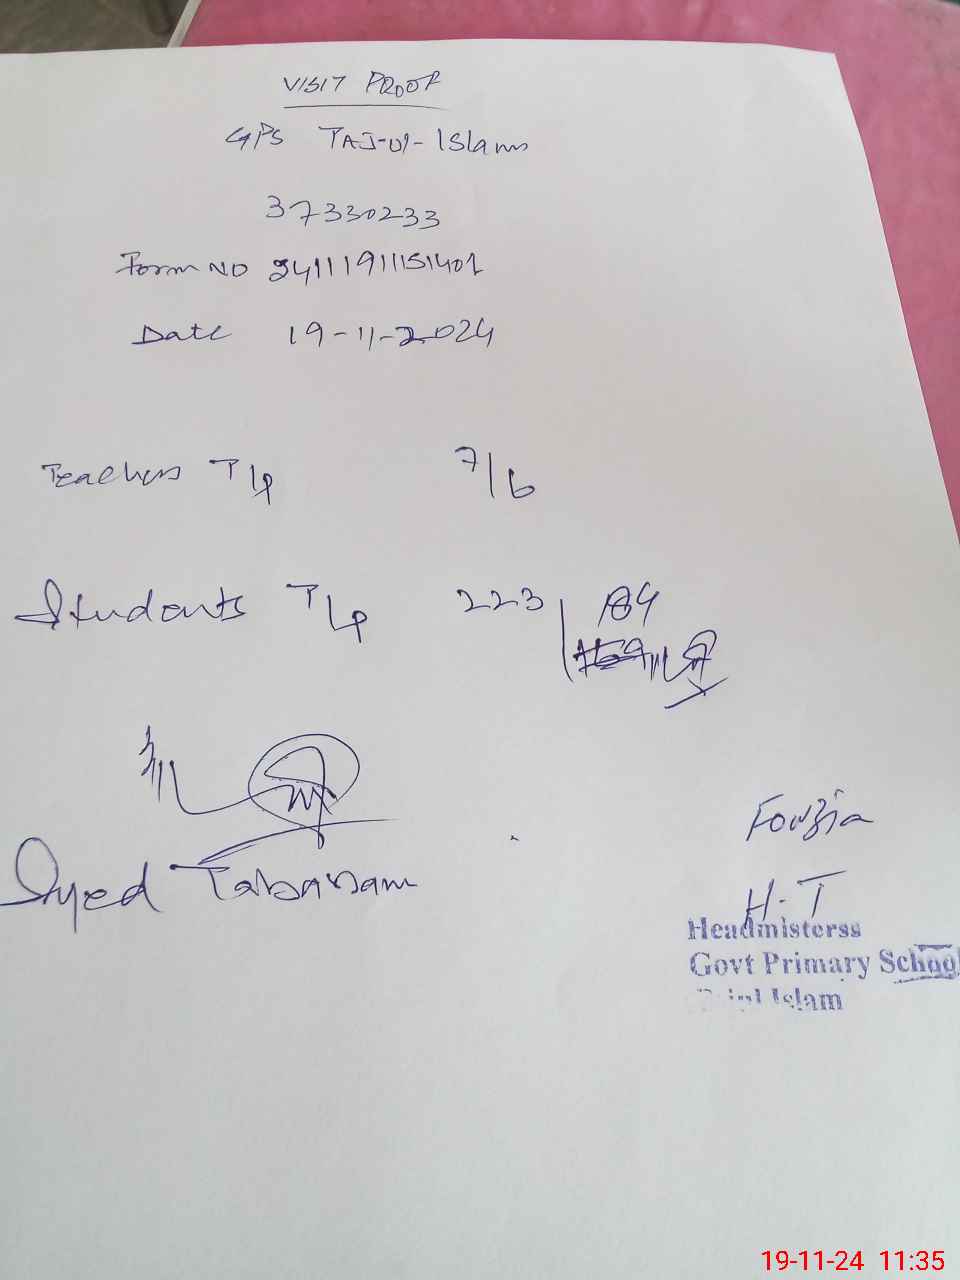 VISIT PROOF
GPS TAJ-Ul-Islam
37330233
Form NO 24111911151401
Date 19-11-2024
Teachers T/P 7/6
Students T/P 223/184
Syed Tabassam
Fouzia
H.T
Headmisterss
Govt Primary School
Islam
19-11-24 11:35